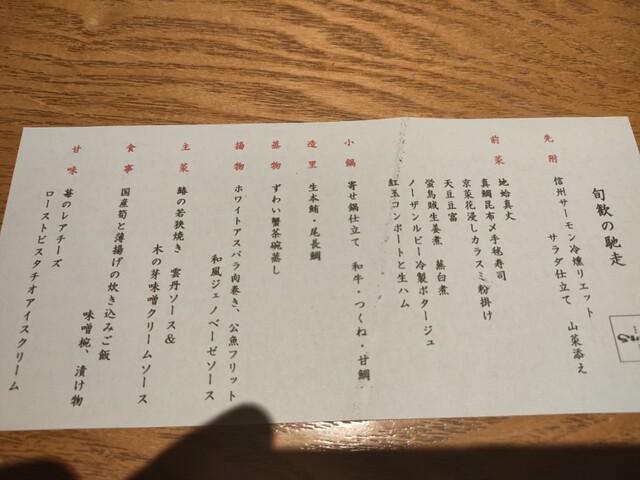 旬歓の馳走
先附
信州サーモン冷燻リエット
サラダ仕立て 山菜添え
前菜
地蛤真丈
真鯛昆布〆手毬寿司
京菜花浸しカラスミ粉掛け
天豆豆富
蛍烏賊生姜煮 蕗白煮
ノーザンルビー冷製ポタージュ
紅玉コンポートと生ハム
小鍋
寄せ鍋仕立て 和牛・つくね・甘鯛
造里
生本鮪・尾長鯛
蒸物
ずわい蟹茶碗蒸し
揚物
ホワイトアスパラ肉巻き、公魚フリット
和風ジェノベーゼソース
主菜
鰆の若狭焼き 雲丹ソース&
木の芽味噌クリームソース
食事
国産筍と薄揚げの炊き込みご飯
味噌椀、漬け物
甘味
苺のレアチーズ
ローストピスタチオアイスクリーム